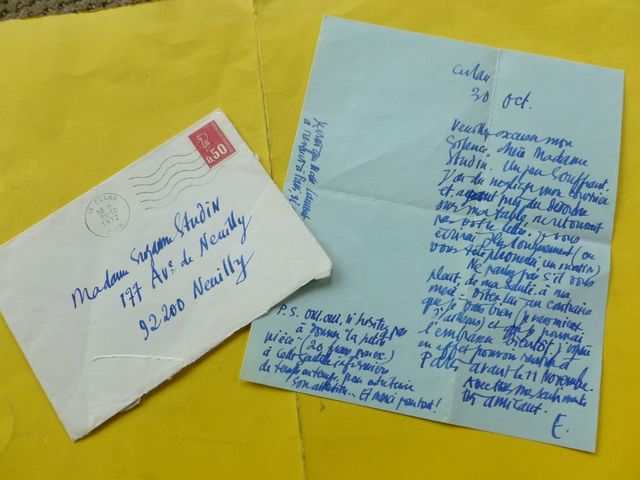 0.50
18 - CULAN
18 H
31-10
1972
Madame Suzanne Studin
177 Ave de Neuilly
92200 Neuilly
Culan
30 Oct.
Veuillez excuser mon
silence, chère Madame
Studin. Un peu souffrant,
j'ai dû négliger mon courrier
et a pris du désordre
sur ma table, ne retrouvant
pas votre lettre. Je vous
écrirai plus longuement (ou
vous téléphonerai un matin)
Ne parlez pas, s'il vous
plaît, de ma santé à ma
mère. Dites lui au contraire
que je vais bien (je vais mieux
d'ailleurs) et que je pourrai
l'embrasser bientôt. J'espère
en effet pouvoir rentrer à
Paris avant le 11 novembre.
Avec tous mes sentiments
très amicaux.
E.
P.S. Oui, oui, n'hésitez pas
à donner la petite
pièce (20 francs
à cette infirmière
de temps en temps, pour
son attention... Et merci pour tout!